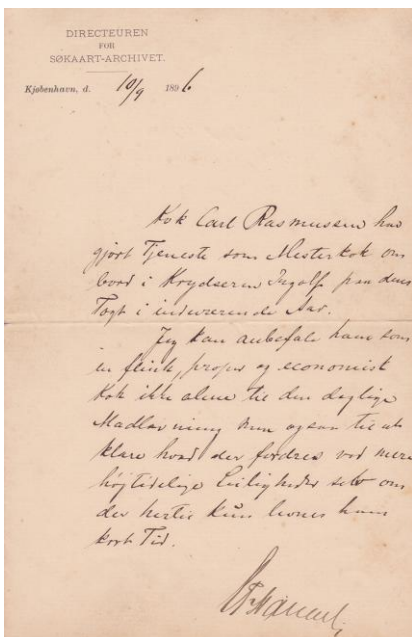 DIRECTEUREN
FOR
SØKAART-ARCHIVET.
Kjøbenhavn, d. 10/9 1896
Kok Carl Rasmussen har
gjort Tjeneste som Mesterkok om
bord i Krydseren Ingolf paa dens
Togt i indeværende Aar.
Jeg kan anbefale ham som
en flink, proper og economisk
Kok ikke alene til den daglige
Madlavning men ogsaa til at
klare hvad der fordres ved mere
højtidelige Leiligheder selv om
der hertil kun levnes ham
kort Tid.